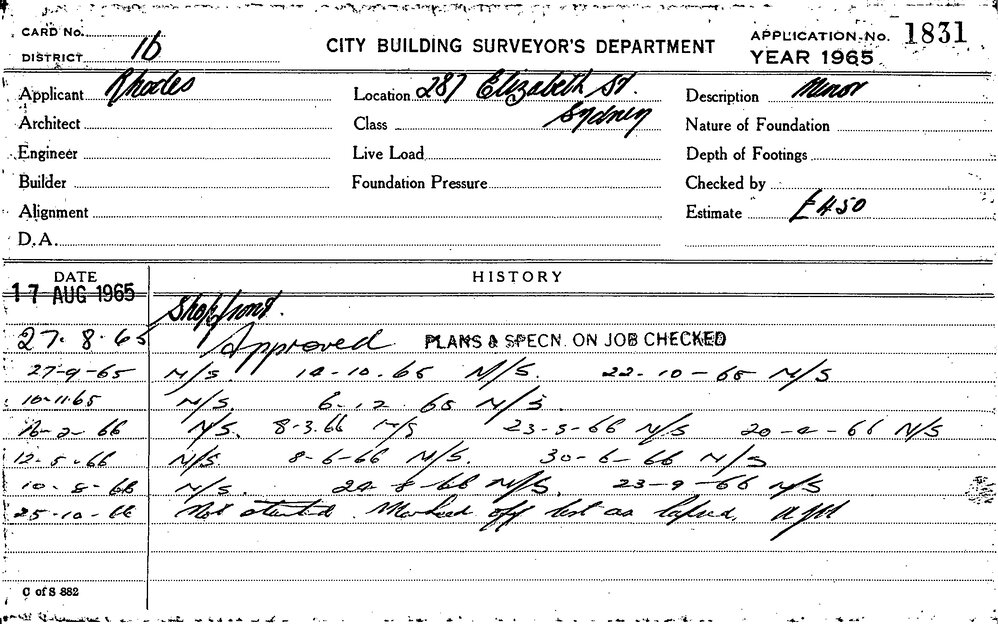 CARD No.
DISTRICT 1b
CITY BUILDING SURVEYOR'S DEPARTMENT
APPLICATION No. 1831
YEAR 1965
Applicant Rhodes Location 287 Elizabeth St. Description Minor
Architect Class Sydney Nature of Foundation
Engineer Live Load Depth of Footings
Builder Foundation Pressure Checked by
Alignment Estimate £450
D.A.
DATE HISTORY
17 AUG 1965 Shopfront.
27.8.65 Approved PLANS & SPECN. ON JOB CHECKED
27-9-65 N/S. 14-10.65 N/S. 22-10-65 N/S
10-11-65 N/S. 6-12 65 N/S.
-2-66 N/S. 8-3.66 N/S 23-3-66 N/S 20-4-66 N/S
12-5-66 N/S. 8-6-66 N/S. 30-6-66 N/S
10-8-66 N/S. 24-8-66 N/S. 23-9-66 N/S
25-10-66 Not started. Marked off list as lapsed.
C of S 882